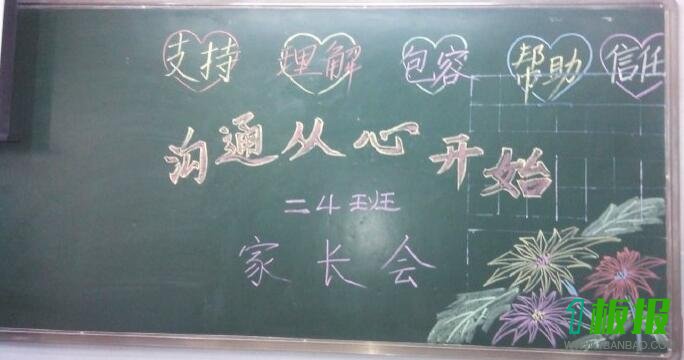 支持 理解 包容 帮助 信任
沟通从心开始
二4班
家长会
板报